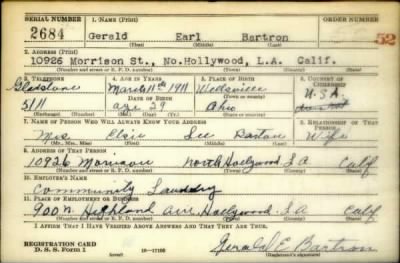 SERIAL NUMBER 1. NAME (Print) ORDER NUMBER
2684 Gerald Earl Bartron 52
(First) (Middle) (Last)
2. ADDRESS (Print)
10926 Morrison St., No.Hollywood, L.A. Calif.
(Number and street or R. F. D. number) (Town) (County) (State)
3. TELEPHONE 4. AGE IN YEARS 5. PLACE OF BIRTH 6. COUNTRY OF CITIZENSHIP
Gladstone March 11th 1911 Wellsville U.S.A.
DATE OF BIRTH (Town or county)
5111 age 29 Ohio
(Exchange) (Number) (Mo.) (Day) (Yr.) (State or country)
7. NAME OF PERSON WHO WILL ALWAYS KNOW YOUR ADDRESS 8. RELATIONSHIP OF THAT PERSON
Mrs Elsie Lee Bartron Wife
(Mr., Mrs., Miss) (First) (Middle) (Last)
9. ADDRESS OF THAT PERSON
10926 Morrison North Hollywood L A Calif
(Number and street or R. F. D. number) (Town) (County) (State)
10. EMPLOYER'S NAME
Community Laundry
11. PLACE OF EMPLOYMENT OR BUSINESS
900 N. Highland ave Hollywood L A Calif
(Number and street or R. F. D. number) (Town) (County) (State)
I AFFIRM THAT I HAVE VERIFIED ABOVE ANSWERS AND THAT THEY ARE TRUE.
REGISTRATION CARD
D. S. S. Form 1 Gerald E Bartron
(Registrant's signature)